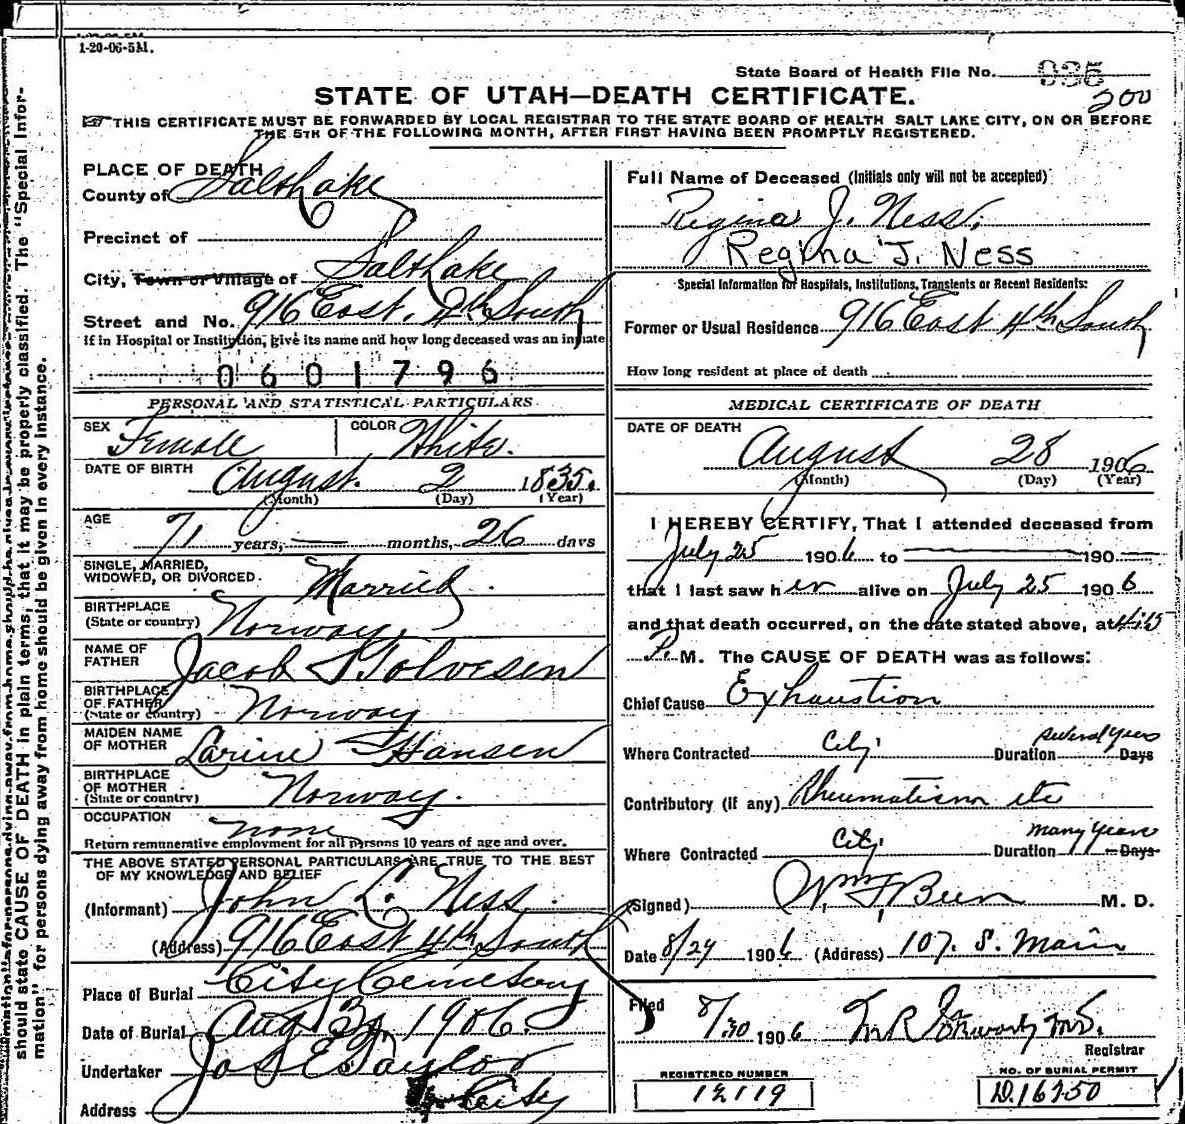 1-20-06-5M.
State Board of Health File No. 935
200
STATE OF UTAH—DEATH CERTIFICATE.
THIS CERTIFICATE MUST BE FORWARDED BY LOCAL REGISTRAR TO THE STATE BOARD OF HEALTH SALT LAKE CITY, ON OR BEFORE
THE 5TH OF THE FOLLOWING MONTH, AFTER FIRST HAVING BEEN PROMPTLY REGISTERED.
should state CAUSE OF DEATH in plain terms, that it may be properly classified. The "Special Infor-
mation" for persons dying away from home should be given in every instance.
PLACE OF DEATH
County of Salt Lake
Precinct of
City, Town or Village of Salt Lake
Street and No. 916 East 4th South
If in Hospital or Institution, give its name and how long deceased was an inmate
0601796
PERSONAL AND STATISTICAL PARTICULARS
SEX Female COLOR White.
DATE OF BIRTH August 2 1835.
(Month) (Day) (Year)
AGE 71 years, — months, 26 days
SINGLE, MARRIED,
WIDOWED, OR DIVORCED. Married
BIRTHPLACE
(State or country) Norway
NAME OF
FATHER Jacob Tolvesen
BIRTHPLACE
OF FATHER
(State or country) Norway
MAIDEN NAME
OF MOTHER Larine Hansen
BIRTHPLACE
OF MOTHER
(State or country) Norway.
OCCUPATION none
Return remunerative employment for all persons 10 years of age and over.
THE ABOVE STATED PERSONAL PARTICULARS ARE TRUE TO THE BEST
OF MY KNOWLEDGE AND BELIEF
(Informant) John L. Ness
(Address) 916 East 4th South
Place of Burial City Cemetery
Date of Burial Aug 1906.
Undertaker Jos E Taylor
Address City
Full Name of Deceased (Initials only will not be accepted)
Regina J. Ness.
Regina J. Ness
Special Information for Hospitals, Institutions, Transients or Recent Residents:
Former or Usual Residence 916 East 4th South
How long resident at place of death
MEDICAL CERTIFICATE OF DEATH
DATE OF DEATH
August 28 1906
(Month) (Day) (Year)
I HEREBY CERTIFY, That I attended deceased from
July 25 1906 to 190
that I last saw her alive on July 25 1906
and that death occurred, on the date stated above, at 4:15
P. M. The CAUSE OF DEATH was as follows:
Chief Cause Exhaustion
Where Contracted City Duration several years Days
Contributory (if any) Rheumatism etc
Where Contracted City Duration many years Days
(Signed) Wm F Beer M. D.
Date 8/29 1906 (Address) 107. S. Main
Filed 8/30 1906
Registrar
REGISTERED NUMBER
12119
NO. OF BURIAL PERMIT
D.16250